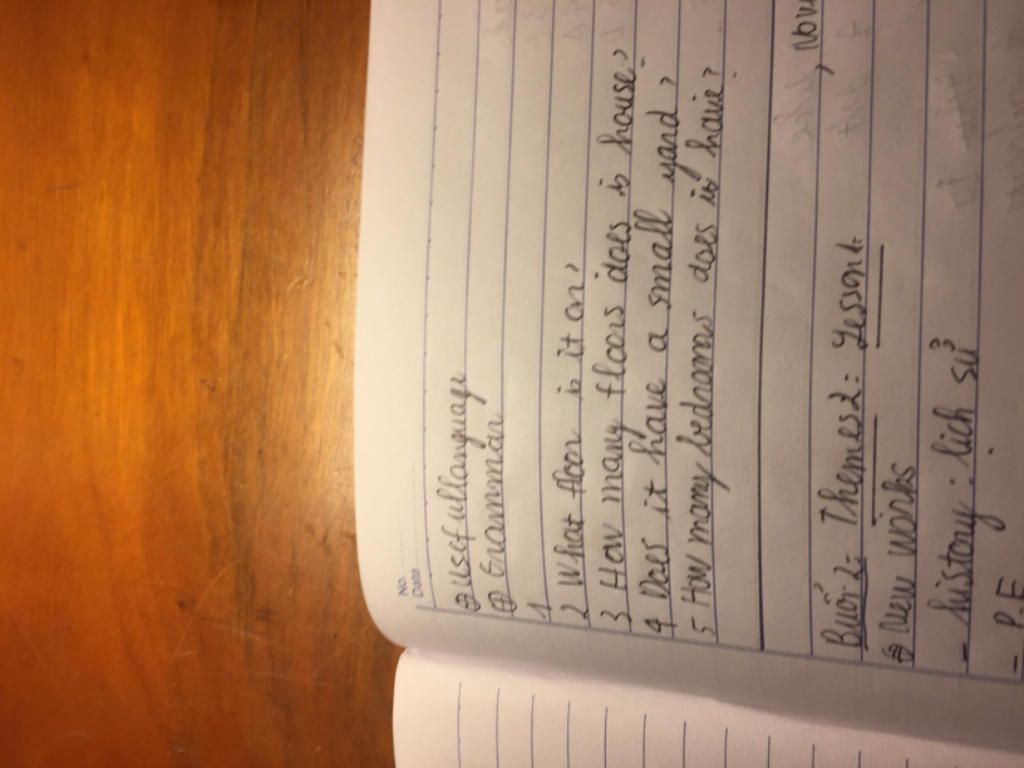 No.
Date
⊕ usefullanguage
⊕ Grammar
1
2 What floor is it on?
3 How many floors does is house?
4 Does it have a small yard?
5 How many bedrooms does is have?
Buổi 2: Themes 2: Lesson 1.
⊕ New works
- history: lịch sử
- P.E